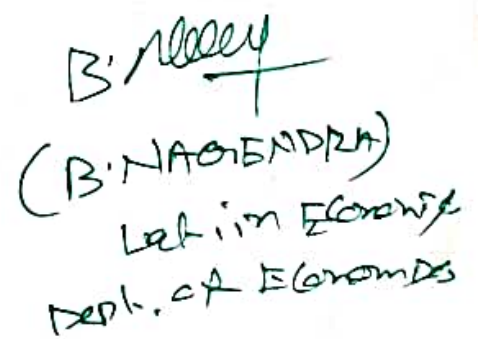 (B. NAGENDRA)
Lect. in Economics
Dept. of Economics